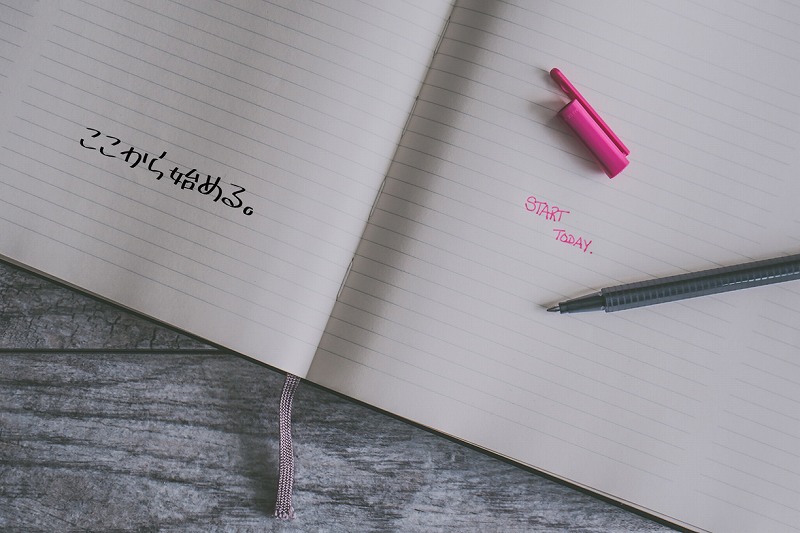 ここから始める。
START
TODAY.